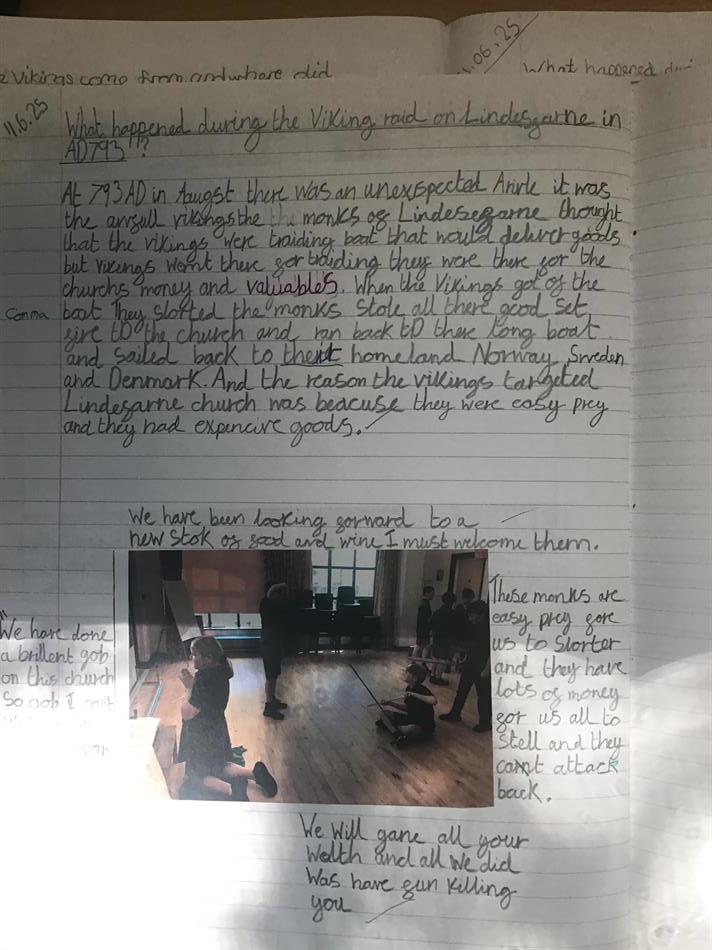 Vikings come from and where did
.06.25
What happened
11.6.25
What happened during the Viking raid on Lindesgarne in
AD793 ?
At 793 AD in Augst there was an unexspected it was
the vikings the the monks of Lindesegarne thought
that the vikings were traiding boat that would deliver goods
but vikings wornt there for traiding they were there for the
churchs money and valuables. When the Vikings got of the
Comma
boat They slorted the monks Stole all there good set
fire to the church and ran back to there long boat
and sailed back to homeland Norway, Sweden
and Denmark. And the reason the vikings targeted
Lindesarne church was beacuse they were easy prey
and they had expencive goods.
We have been looking forward to a
new stok of food and wine I must welcome them.
We have done
a brillent gob
on this church
So gob I
These monks are
easy prey fore
us to Slorter
and they have
lots of money
for us all to
Stell and they
cannt attack
back.
We will gane all your
Welth and all we did
Was have fun killing
you